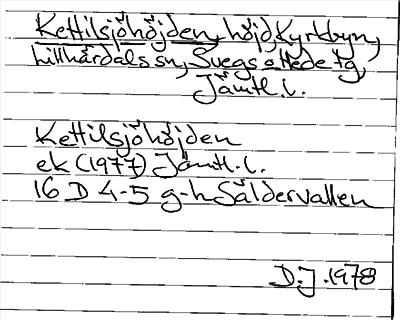 Kettilsjöhöjden, höjd, Kyrkbyn,
Lillhärdals sn, Svegs o Hede tg,
Jämtl. l.
Kettilsjöhöjden
ek (1977) Jämtl. l.
16 D 4-5 g-h Såldervallen
D.J. 1978